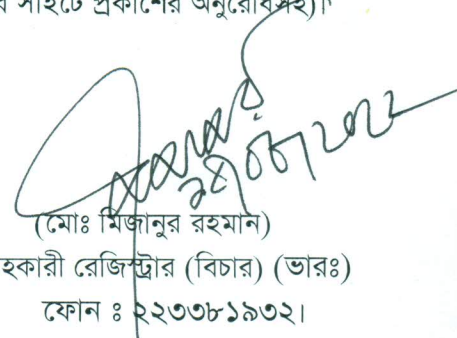 সাইটে প্রকাশের অনুরোধসহ)।
(মোঃ মিজানুর রহমান)
হকারী রেজিস্ট্রার (বিচার) (ভারঃ)
ফোন ঃ ২২৩৩৮১৯৩২।